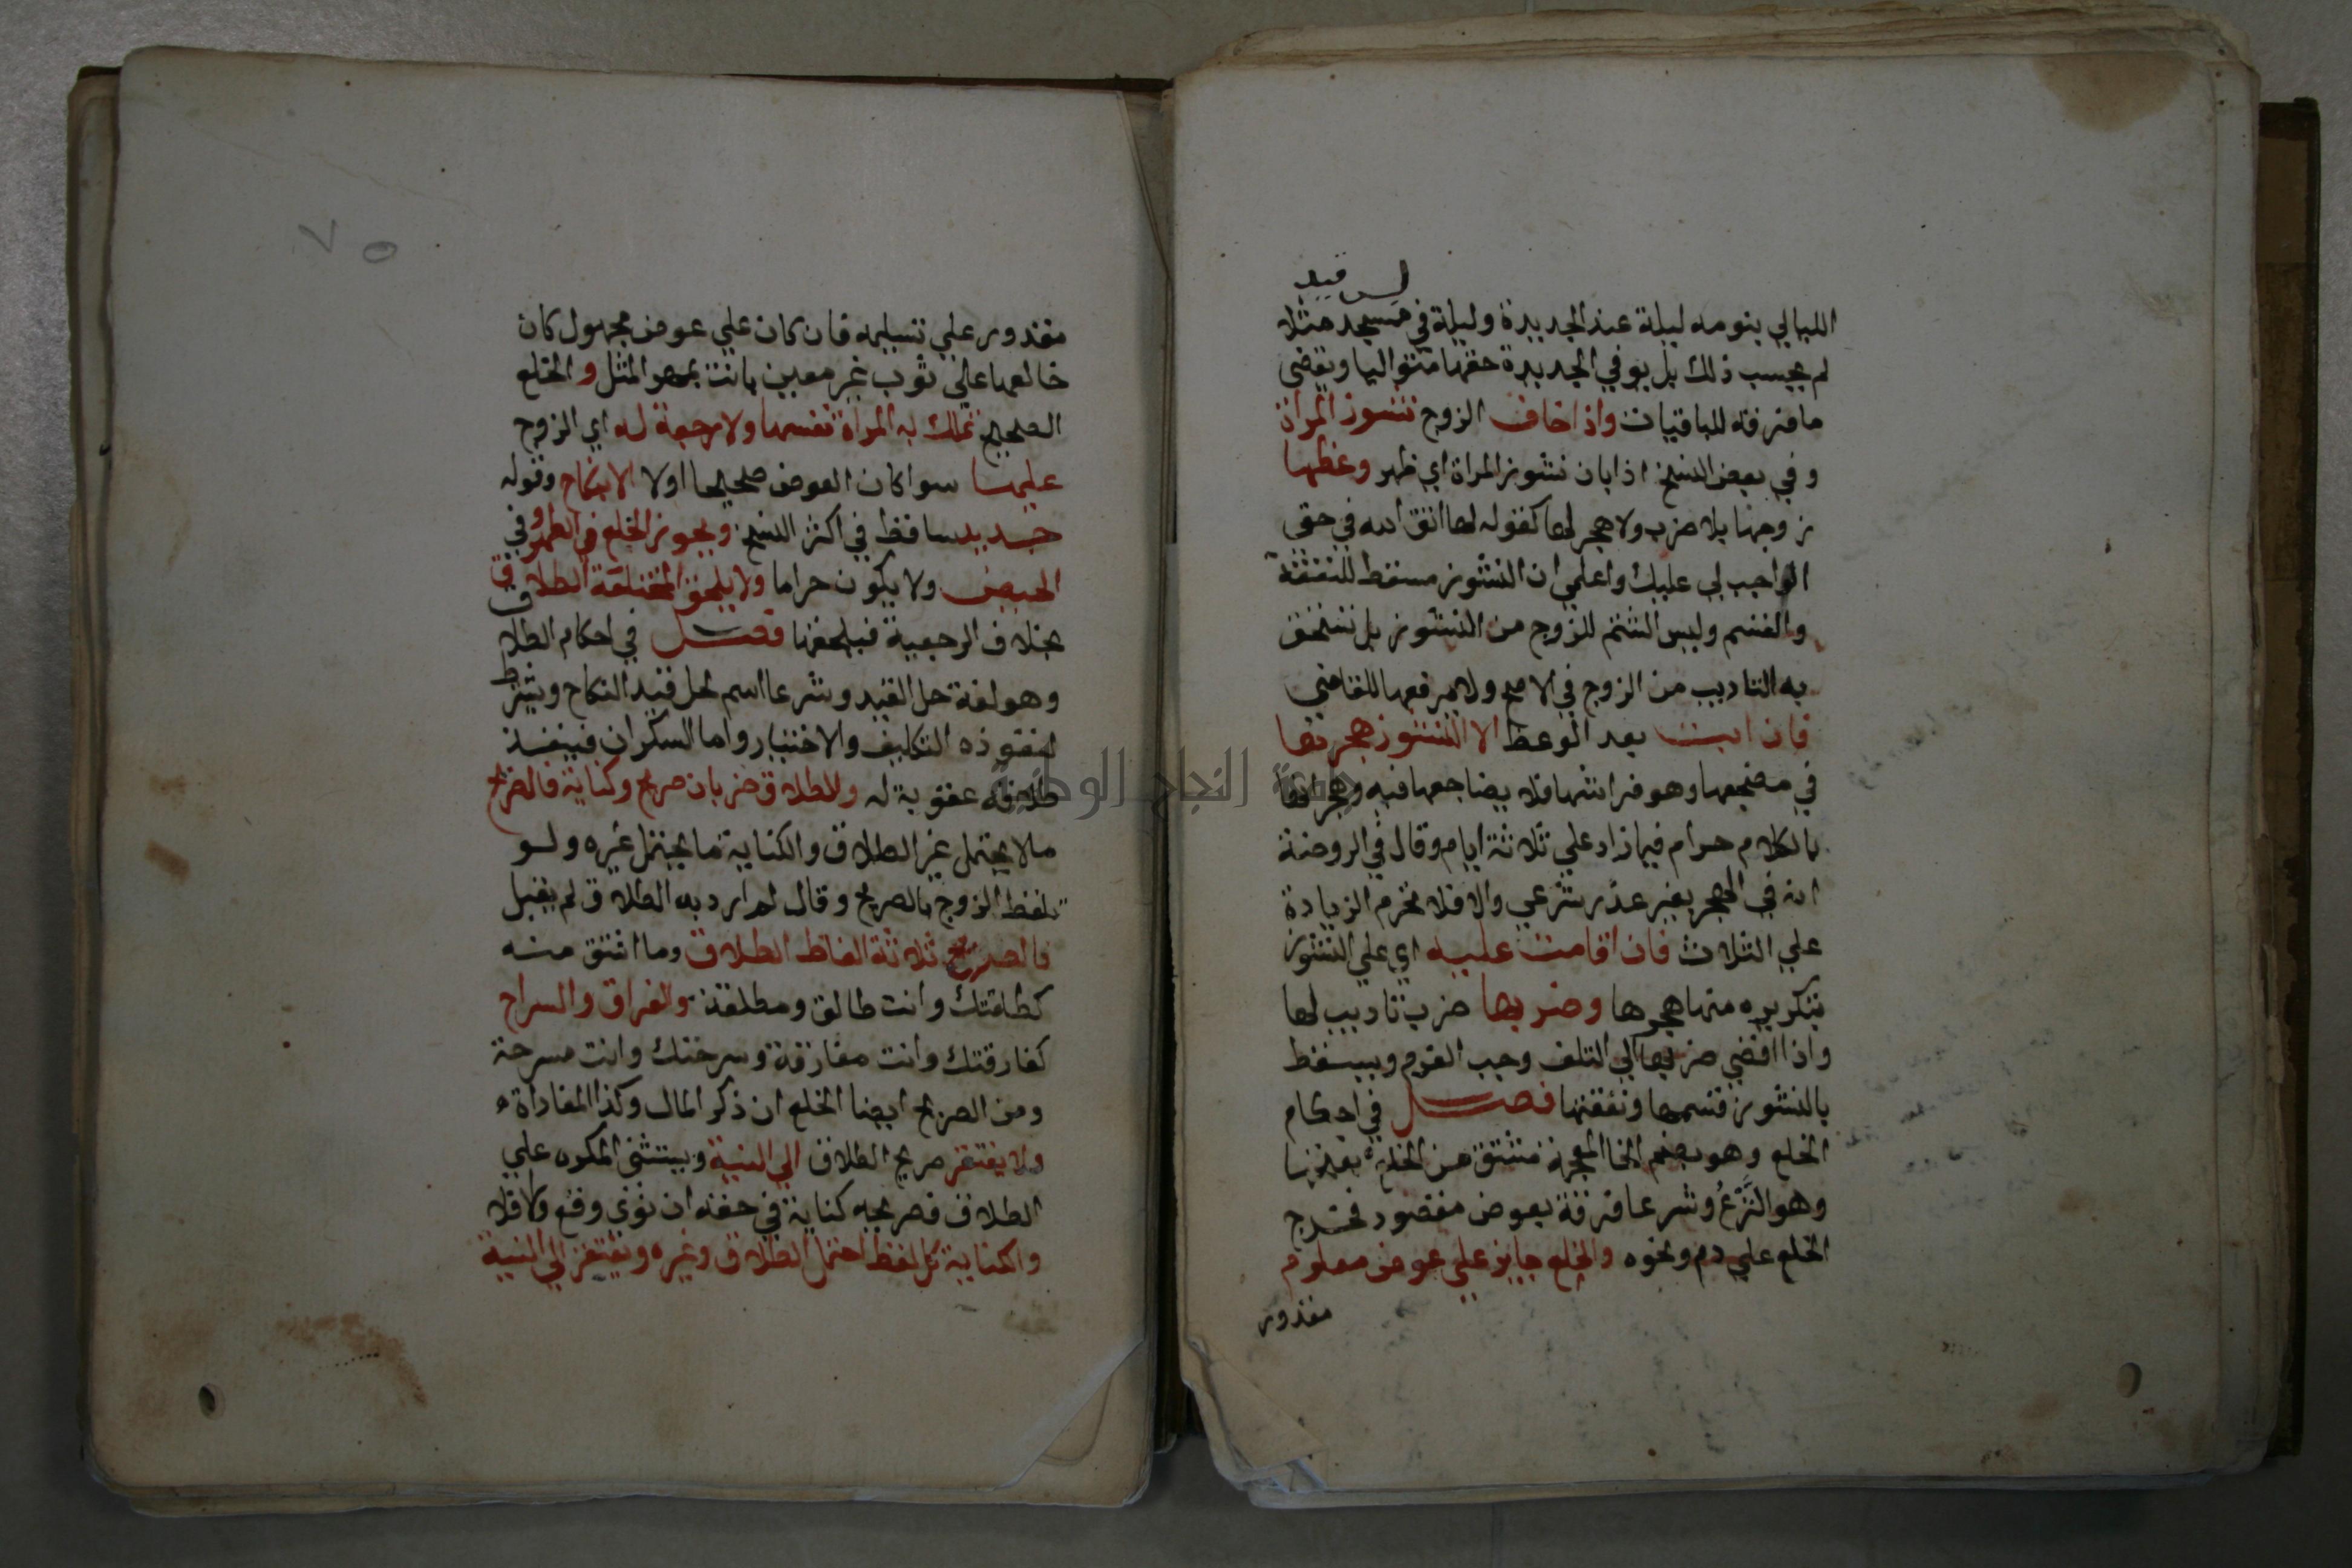 ليس قيد
الليالي بنومه ليلة عند الجديدة وليلة في مسجد مثلا
لم يحسب ذلك بل يوفي الجديدة حقها متواليا ويقضي
ما فرقه للباقيات واذا خاف الزوج نشوز المراة
وفي بعض النسخ اذا بان نشوز المراة اي ظهر وعظها
زوجها بلا ضرب ولا هجر لها كقوله لها اتق الله في حقي
الواجب لي عليك واعلمي ان النشوز مسقط للنفقة
والقسم وليس الشتم للزوج من النشوز بل تستحق
به التاديب من الزوج في الاصح ولا يرفعها للقاضي
فان ابت بعد الوعظ الا النشوز هجرها
في مضجعها وهو فراشها فلا يضاجعها فيه وهجرانها
بالكلام حرام فيما زاد علي ثلاثة ايام وقال في الروضة
انه في الهجر بغير عذر شرعي والا فلا تحرم الزيادة
علي الثلاث فان اقامت عليه اي علي النشوز
بتكريره منها هجرها وضربها ضرب تاديب لها
واذا افضي ضربها الي التلف وجب الغرم ويسقط
بالنشوز قسمها ونفقتها فصل في احكام
الخلع وهو بضم الخا المعجمة مشتق من الخلع بفتحها
وهو النَّزْعُ وشرعا فرقة بعوض مقصود فخرج
الخلع علي دم ونحوه والخلع جايز علي عوض معلوم
مقدور
٧٥
مقدور علي تسليمه فان كان علي عوض مجهول كان
خالعها علي ثوب غير معين بانت بمهر المثل و الخلع
الصحيح تملك به المراة نفسها ولا رجعة له اي الزوج
عليها سوا كان العوض صحيحا اولا الا بنكاح وقوله
جديد ساقط في اكثر النسخ ويجوز الخلع في الطهر وفي
الحيض ولا يكون حراما ولا يلحق المختلعة الطلاق
بخلاف الرجعية فيلحقها فصل في احكام الطلاق
وهو لغة حل القيد وشرعا اسم لحل قيد النكاح ويشترط
لنفوذه التكليف والاختيار واما السكران فينفذ
طلاقه عقوبة له والطلاق ضربان صريح وكناية فالصريح
مالا يحتمل غير الطلاق والكناية ما يحتمل غيره ولو
تلفظ الزوج بالصريح وقال لم ارد به الطلاق لم يقبل
فالصريح ثلاثة الفاظ الطلاق وما اشتق منه
كطلقتك وانت طالق ومطلقة والفراق والسراح
كفارقتك وانت مفارقة وسرحتك وانت مسرحة
ومن الصريح ايضا الخلع ان ذكر المال وكذا المفاداة
ولا يفتقر صريح الطلاق الي النية ويستثني المكره علي
الطلاق فصريحه كناية في حقه ان نوي وقع والا فلا
والكناية كل لفظ احتمل الطلاق وغيره ويفتقر الي النية
جامعة النجاح الوطنية